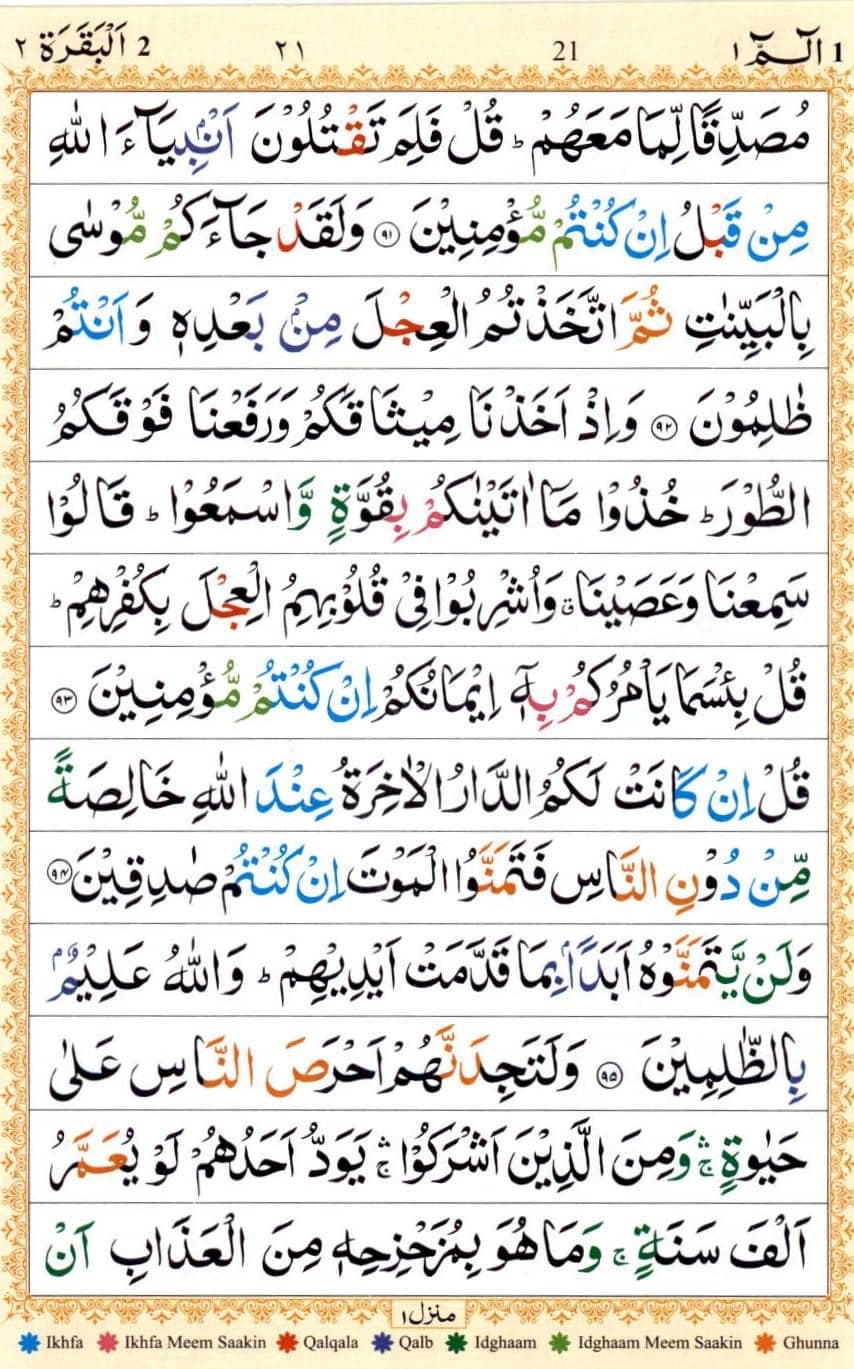 1 الٓـمّٓ ١ 21 ٢١ 2 اَلْبَقَرَة ٢
مُصَدِّقًا لِّمَا مَعَهُمْ ؕ قُلْ فَلِمَ تَقْتُلُوْنَ اَنْۢبِيَآءَ اللّٰهِ
مِنْ قَبْلُ اِنْ كُنْتُمْ مُّؤْمِنِيْنَ ﴿۹۱﴾ وَلَقَدْ جَآءَكُمْ مُّوْسٰى
بِالْبَيِّنٰتِ ثُمَّ اتَّخَذْتُمُ الْعِجْلَ مِنْۢ بَعْدِهٖ وَاَنْتُمْ
ظٰلِمُوْنَ ﴿۹۲﴾ وَاِذْ اَخَذْنَا مِيْثَاقَكُمْ وَرَفَعْنَا فَوْقَكُمُ
الطُّوْرَ ؕ خُذُوْا مَاۤ اٰتَيْنٰكُمْ بِقُوَّةٍ وَّاسْمَعُوْا ؕ قَالُوْا
سَمِعْنَا وَعَصَيْنَا ۗ وَاُشْرِبُوْا فِيْ قُلُوْبِهِمُ الْعِجْلَ بِكُفْرِهِمْ ؕ
قُلْ بِئْسَمَا يَاْمُرُكُمْ بِهٖۤ اِيْمَانُكُمْ اِنْ كُنْتُمْ مُّؤْمِنِيْنَ ﴿۹۳﴾
قُلْ اِنْ كَانَتْ لَكُمُ الدَّارُ الْاٰخِرَةُ عِنْدَ اللّٰهِ خَالِصَةً
مِّنْ دُوْنِ النَّاسِ فَتَمَنَّوُا الْمَوْتَ اِنْ كُنْتُمْ صٰدِقِيْنَ ﴿۹۴﴾
وَلَنْ يَّتَمَنَّوْهُ اَبَدًۢا بِمَا قَدَّمَتْ اَيْدِيْهِمْ ؕ وَاللّٰهُ عَلِيْمٌۢ
بِالظّٰلِمِيْنَ ﴿۹۵﴾ وَلَتَجِدَنَّهُمْ اَحْرَصَ النَّاسِ عَلٰى
حَيٰوةٍ ۛۚ وَمِنَ الَّذِيْنَ اَشْرَكُوْا ۛۚ يَوَدُّ اَحَدُهُمْ لَوْ يُعَمَّرُ
اَلْفَ سَنَةٍ ۚ وَمَا هُوَ بِمُزَحْزِحِهٖ مِنَ الْعَذَابِ اَنْ
منزل ١
Ikhfa Ikhfa Meem Saakin Qalqala Qalb Idghaam Idghaam Meem Saakin Ghunna